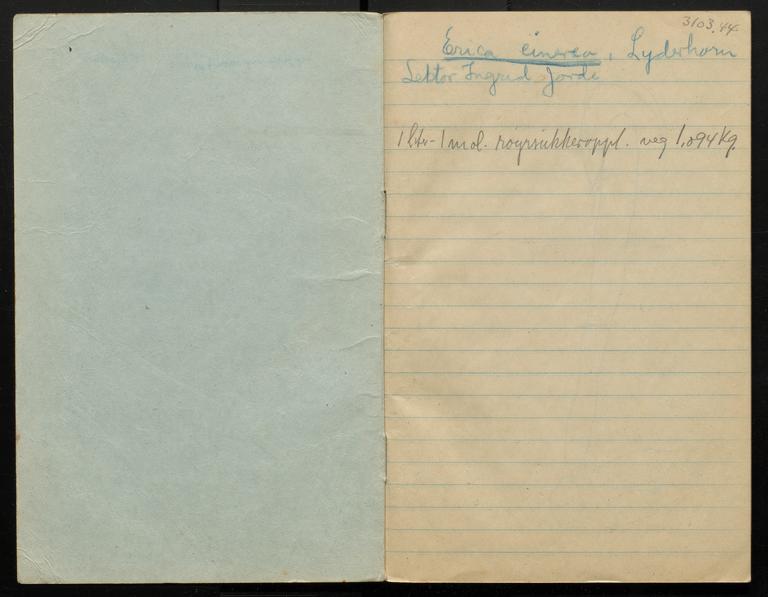 3103.44
Erica cinerea, Lyderhorn
Lektor Ingrid Jorde
1 ltr - 1 mol. røyrsukkeroppl. veg 1,094 kg.